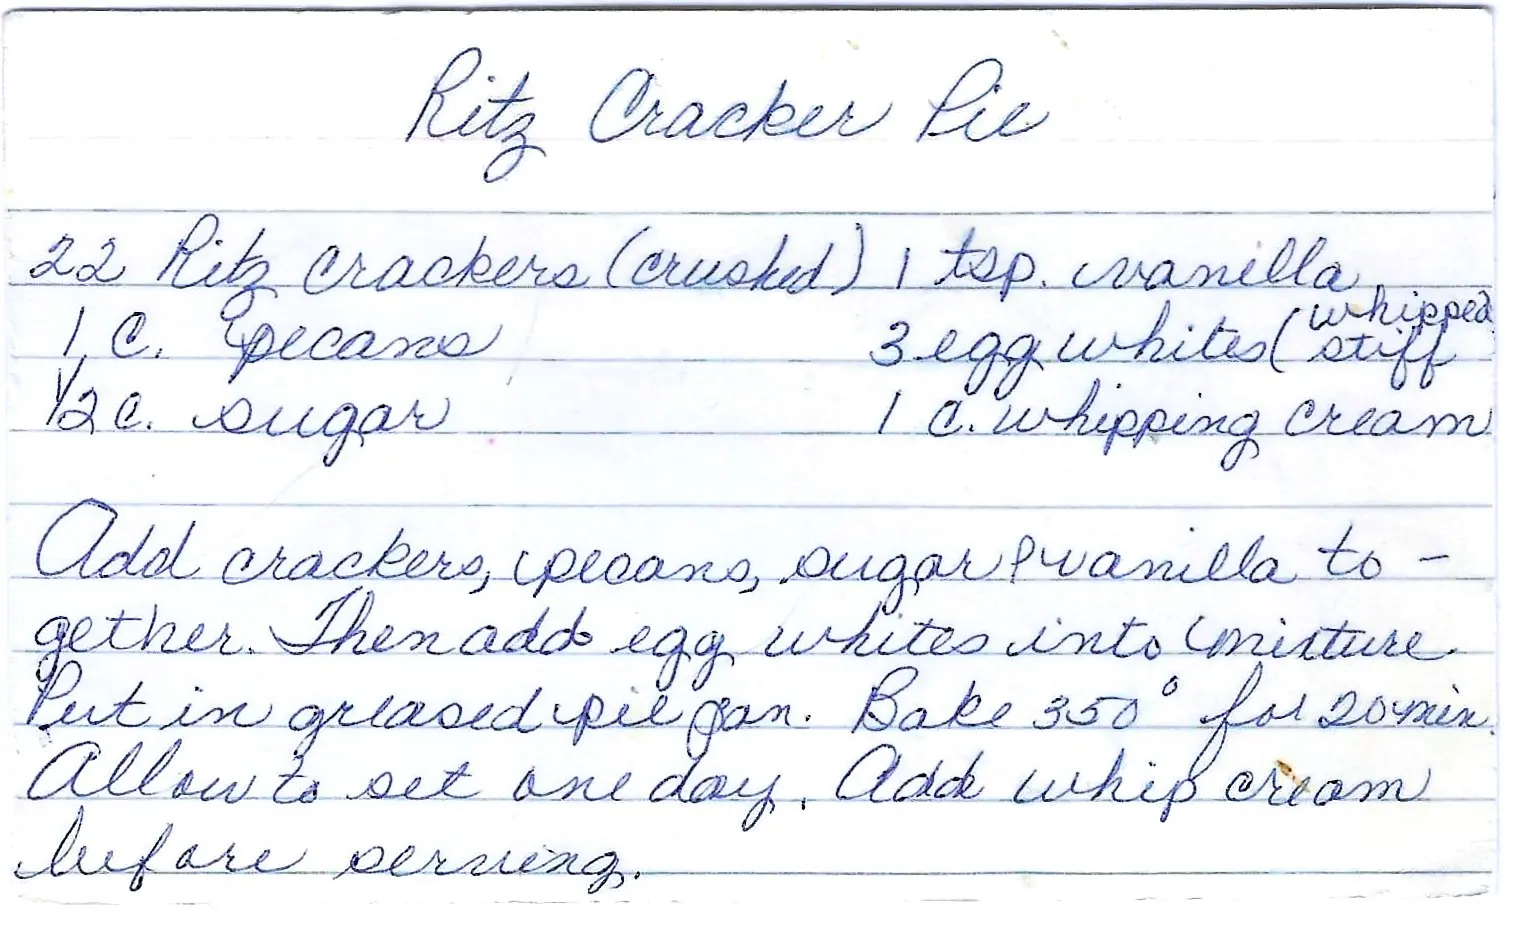 Ritz Cracker Pie
22 Ritz crackers (crushed) 1 tsp. vanilla
1 C. pecans 3 egg whites (whipped stiff
1/2 c. sugar 1 c. whipping cream
Add crackers, pecans, sugar & vanilla to-
gether. Then add egg whites into mixture.
Put in greased pie pan. Bake 350° for 20 min.
Allow to set one day. Add whip cream
before serving.